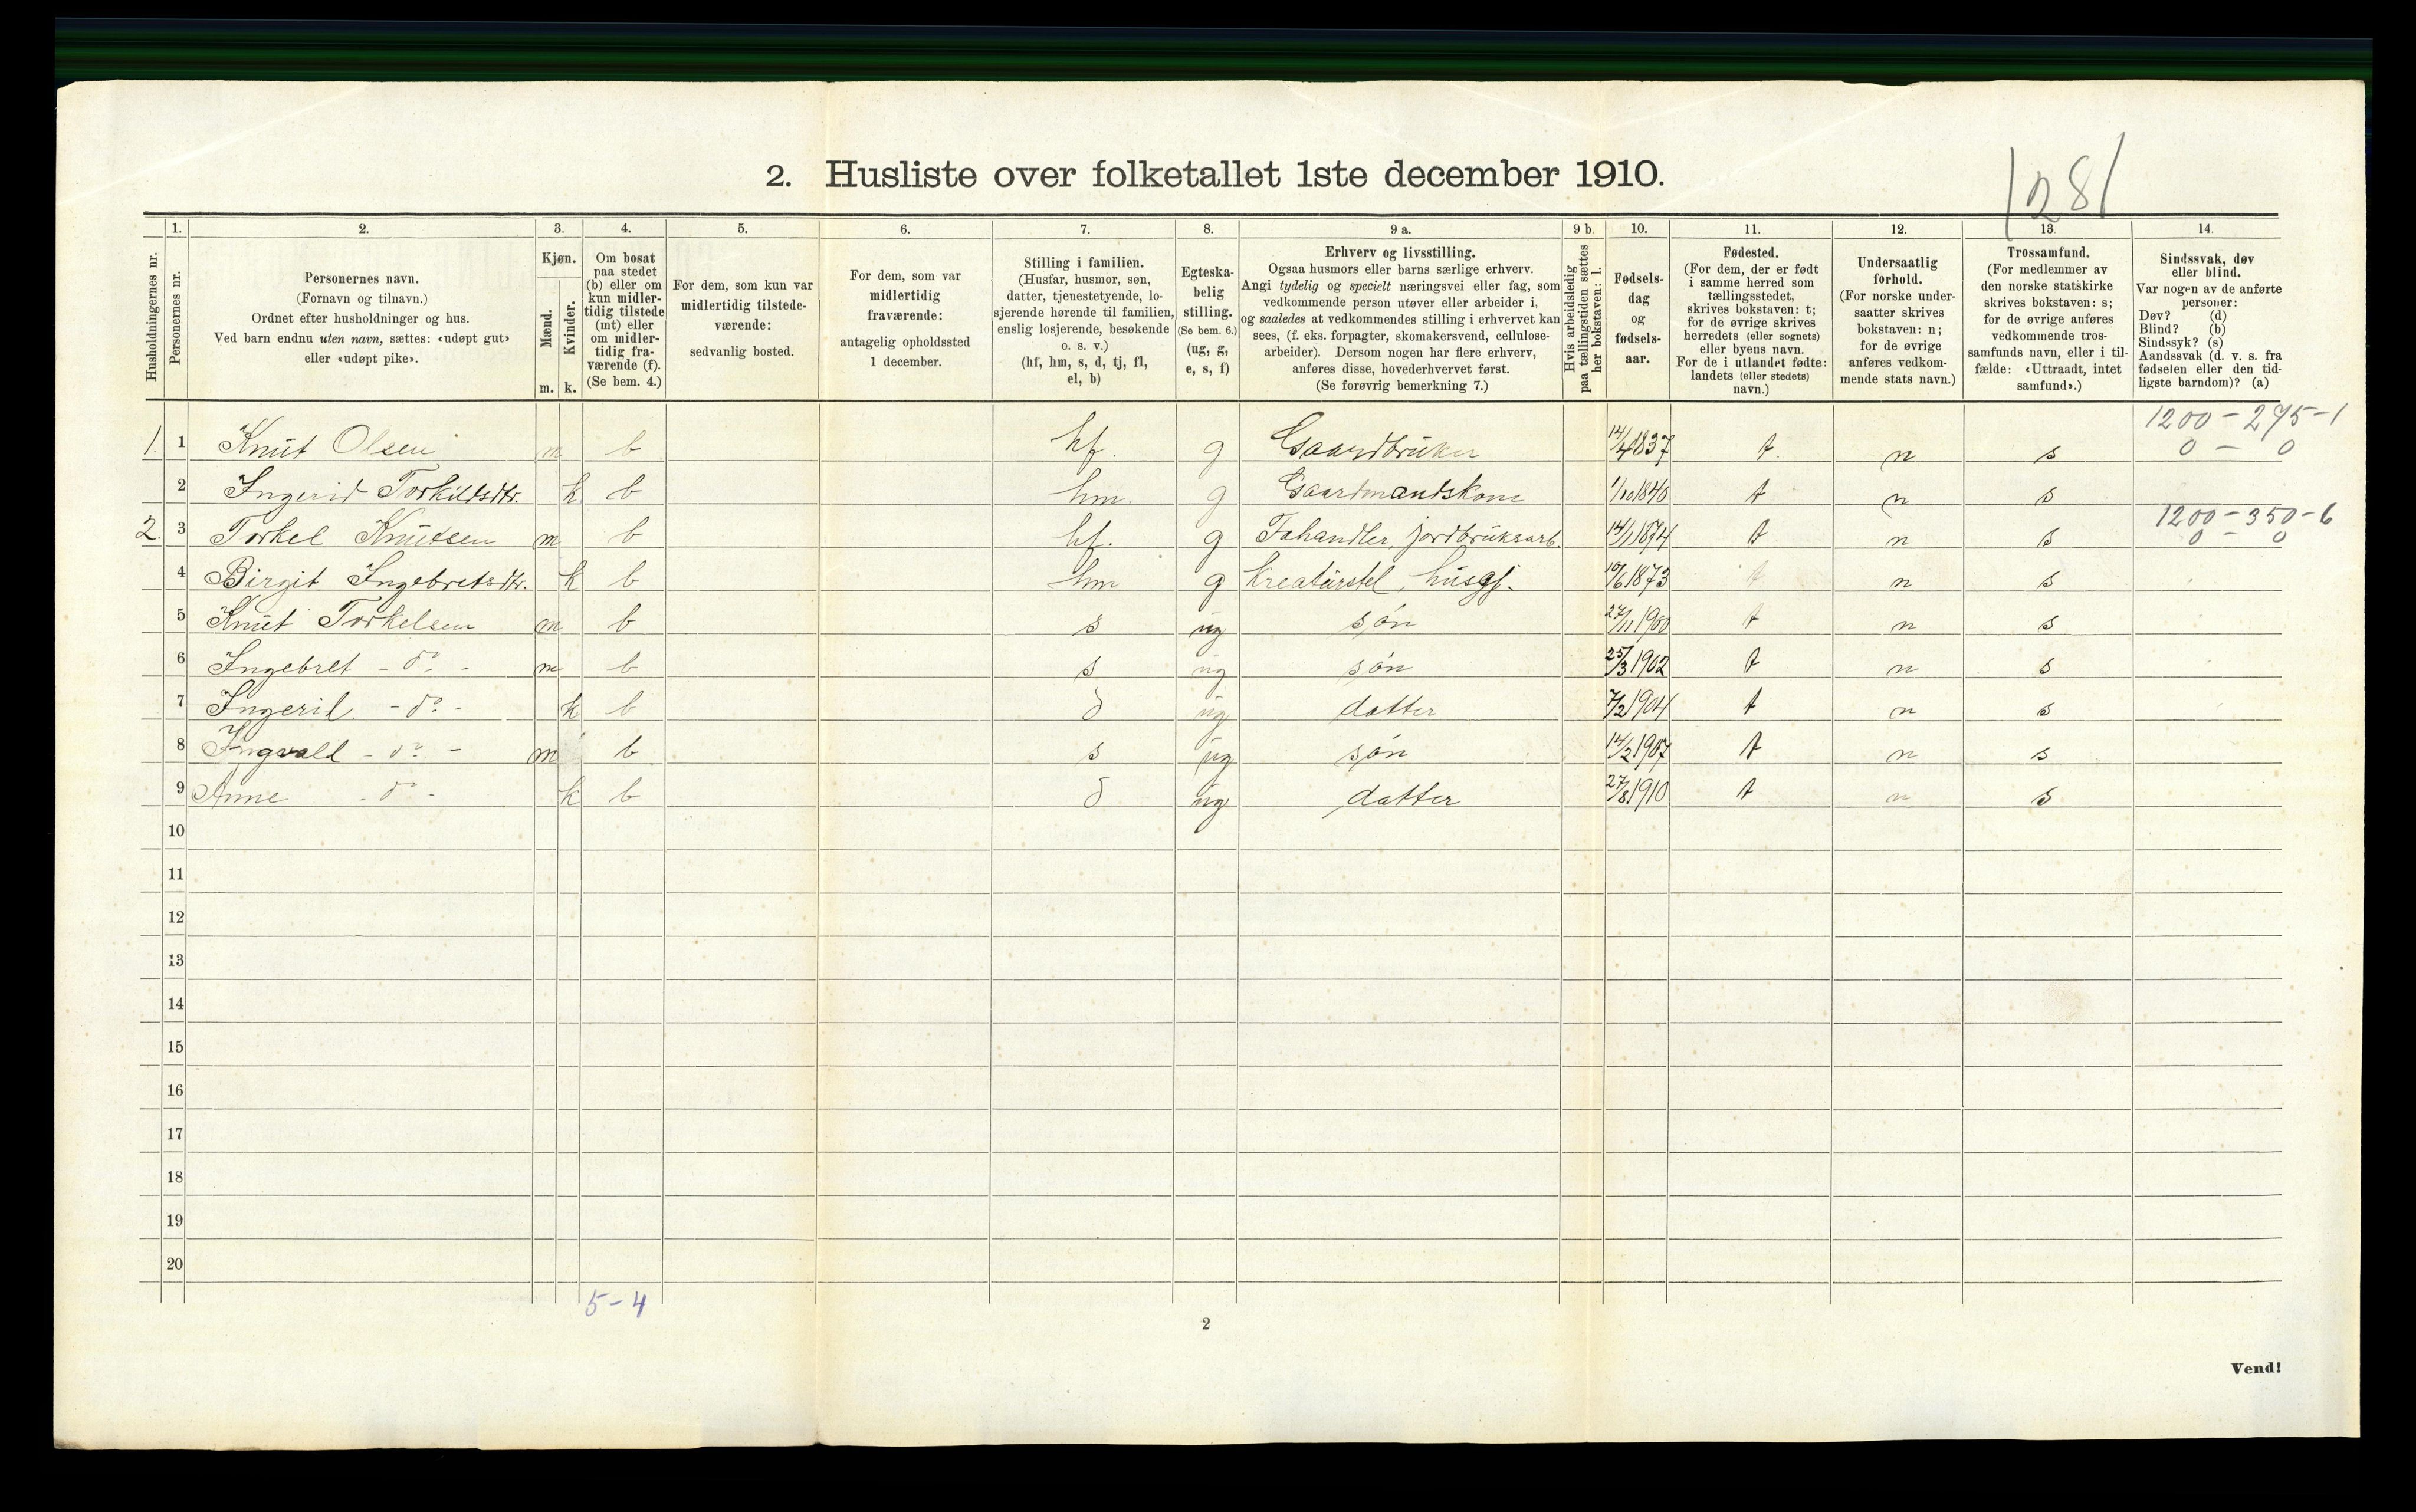 2. Husliste over folketallet 1ste december 1910.
281
1. 2. 3. 4. 5. 6. 7. 8. 9 a. 9 b. 10. 11. 12. 13. 14.
Husholdningernes nr.
Personernes nr.
Personernes navn.
(Fornavn og tilnavn.)
Ordnet efter husholdninger og hus.
Ved barn endnu uten navn, sættes: «udøpt gut»
eller «udøpt pike».
Kjøn.
Mænd.
Kvinder.
m. k.
Om bosat
paa stedet
(b) eller om
kun midler-
tidig tilstede
(mt) eller
om midler-
tidig fra-
værende (f).
(Se bem. 4.)
For dem, som kun var
midlertidig tilstede-
værende:
sedvanlig bosted.
For dem, som var
midlertidig
fraværende:
antagelig opholdssted
1 december.
Stilling i familien.
(Husfar, husmor, søn,
datter, tjenestetyende, lo-
sjerende hørende til familien,
enslig losjerende, besøkende
o. s. v.)
(hf, hm, s, d, tj, fl,
el, b)
Egteska-
belig
stilling.
(Se bem. 6.)
(ug, g,
e, s, f)
Erhverv og livsstilling.
Ogsaa husmors eller barns særlige erhverv.
Angi tydelig og specielt næringsvei eller fag, som
vedkommende person utøver eller arbeider i,
og saaledes at vedkommendes stilling i erhvervet kan
sees, (f. eks. forpagter, skomakersvend, cellulose-
arbeider). Dersom nogen har flere erhverv,
anføres disse, hovederhvervet først.
(Se forøvrig bemerkning 7.)
Hvis arbeidsledig
paa tællingstiden sættes
her bokstaven: l.
Fødsels-
dag
og
fødsels-
aar.
Fødested.
(For dem, der er født
i samme herred som
tællingsstedet,
skrives bokstaven: t;
for de øvrige skrives
herredets (eller sognets)
eller byens navn.
For de i utlandet fødte:
landets (eller stedets)
navn.)
Undersaatlig
forhold.
(For norske under-
saatter skrives
bokstaven: n;
for de øvrige
anføres vedkom-
mende stats navn.)
Trossamfund.
(For medlemmer av
den norske statskirke
skrives bokstaven: s;
for de øvrige anføres
vedkommende tros-
samfunds navn, eller i til-
fælde: «Uttraadt, intet
samfund».)
Sindssvak, døv
eller blind.
Var nogen av de anførte
personer:
Døv? (d)
Blind? (b)
Sindssyk? (s)
Aandssvak (d. v. s. fra
fødselen eller den tid-
ligste barndom)? (a)
1200 - 275 - 1
1. 1 Knut Olsen m b hf. g Gaardbruker 14/4 1837 t n s 0 - 0
2 Ingerid Torkildsdtr. k b hm. g Gaardmandskone 1/10 1840 t n s
1200 - 350 - 6
2. 3 Torkel Knutsen m b hf. g jordbruksarb. 14/1 1874 t n s 0 - 0
4 Birgit Ingebretsdtr. k b hm g Kreaturstel, husgj. 10/6 1873 t n s
5 Knut Torkelsen m b s ug søn 27/11 1900 t n s
6 Ingebret - do - m b s ug søn 25/3 1902 t n s
7 Ingerid - do - k b d ug datter 7/2 1904 t n s
8 Ingvald - do - m b s ug søn 14/2 1907 t n s
9 Anne - do - k b d ug datter 27/8 1910 t n s
10
11
12
13
14
15
16
17
18
19
20
5 - 4
2
Vend!